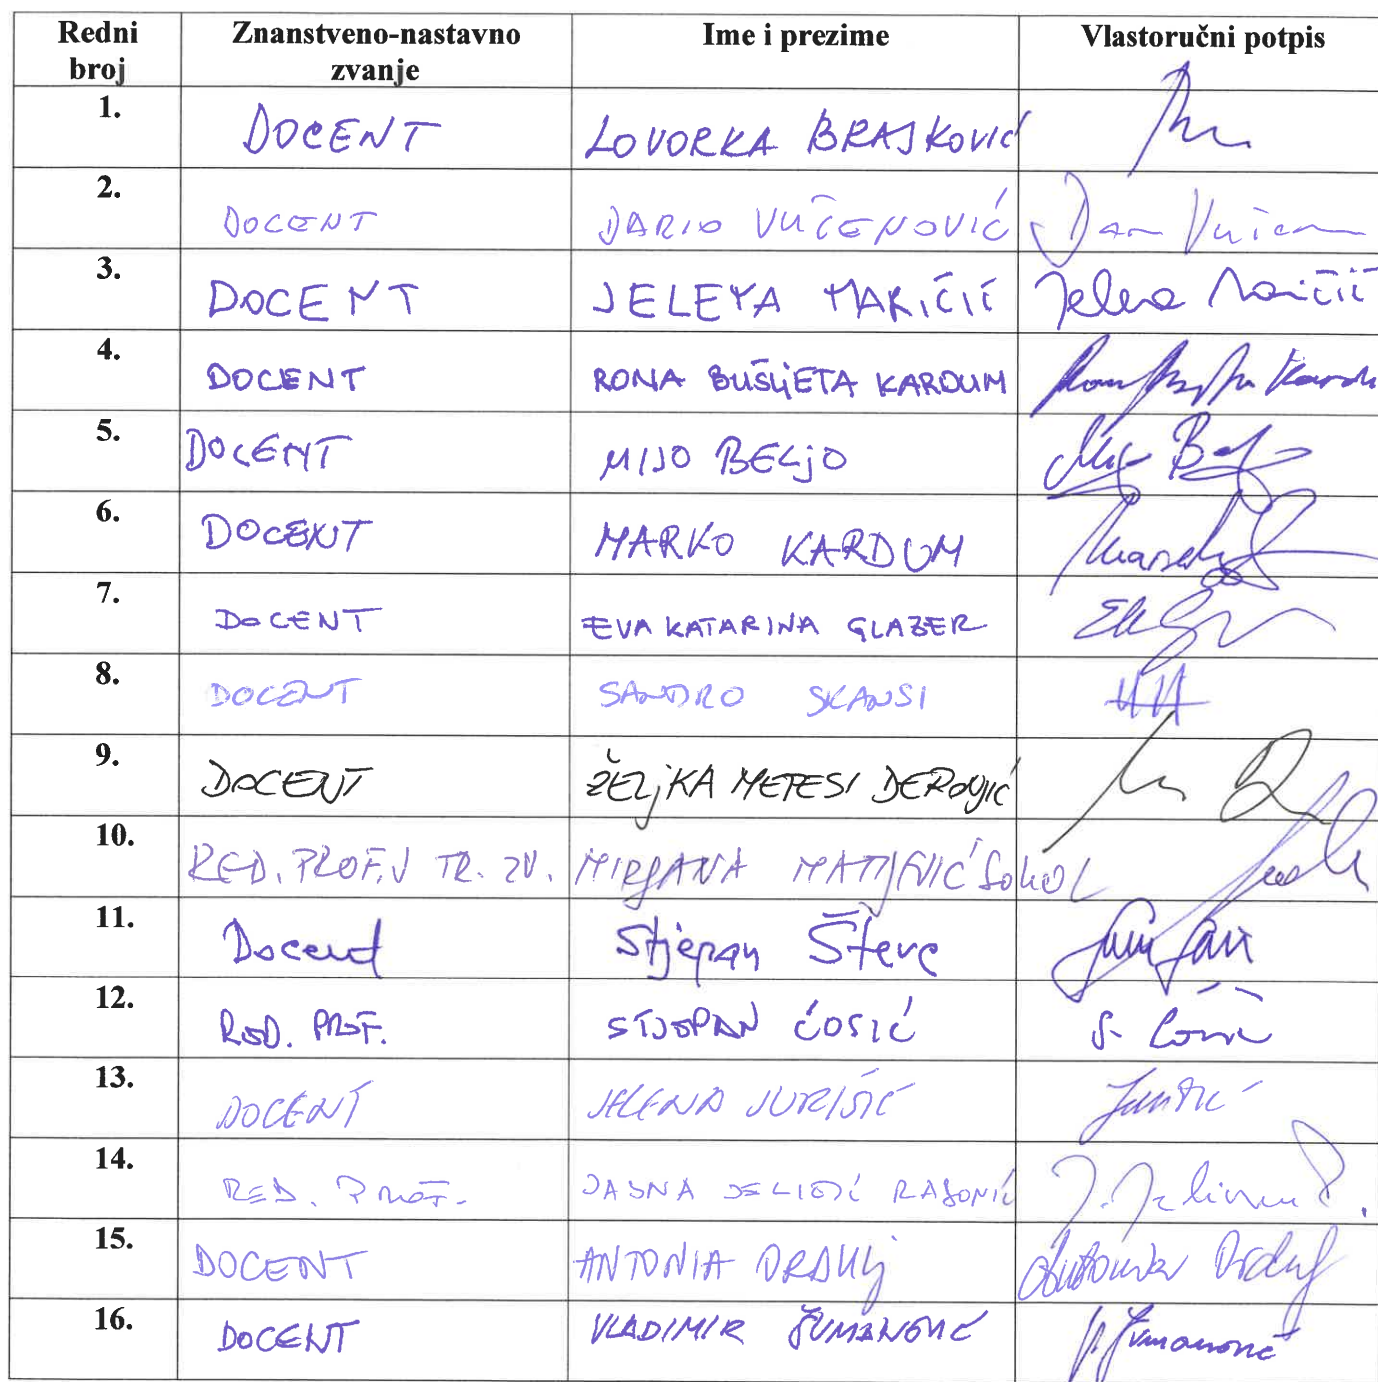 Redni broj Znanstveno-nastavno zvanje Ime i prezime Vlastoručni potpis
1. DOCENT LOVORKA BRAJKOVIĆ
2. DOCENT DARIO VUČENOVIĆ
3. DOCENT JELENA MARIČIĆ Jelena Maričić
4. DOCENT RONA BUŠLJETA KARDUM
5. DOCENT MIJO BELJO
6. DOCENT MARKO KARDUM
7. DOCENT EVA KATARINA GLAZER
8. DOCENT SANDRO SKANSI
9. DOCENT ŽELJKA METESI DERONJIĆ
10. RED. PROF. U TR. ZV. MIRJANA MATIJEVIĆ SOKOL
11. Docent Stjepan Šterc
12. RED. PROF. STJEPAN ĆOSIĆ S. Ćosić
13. DOCENT JELENA JURIŠIĆ Jurišić
14. RED. PROF. JASNA JELIČIĆ RADONIĆ
15. DOCENT ANTONIA DRAUŠ
16. DOCENT VLADIMIR ŠUMANOVIĆ V. Šumanović